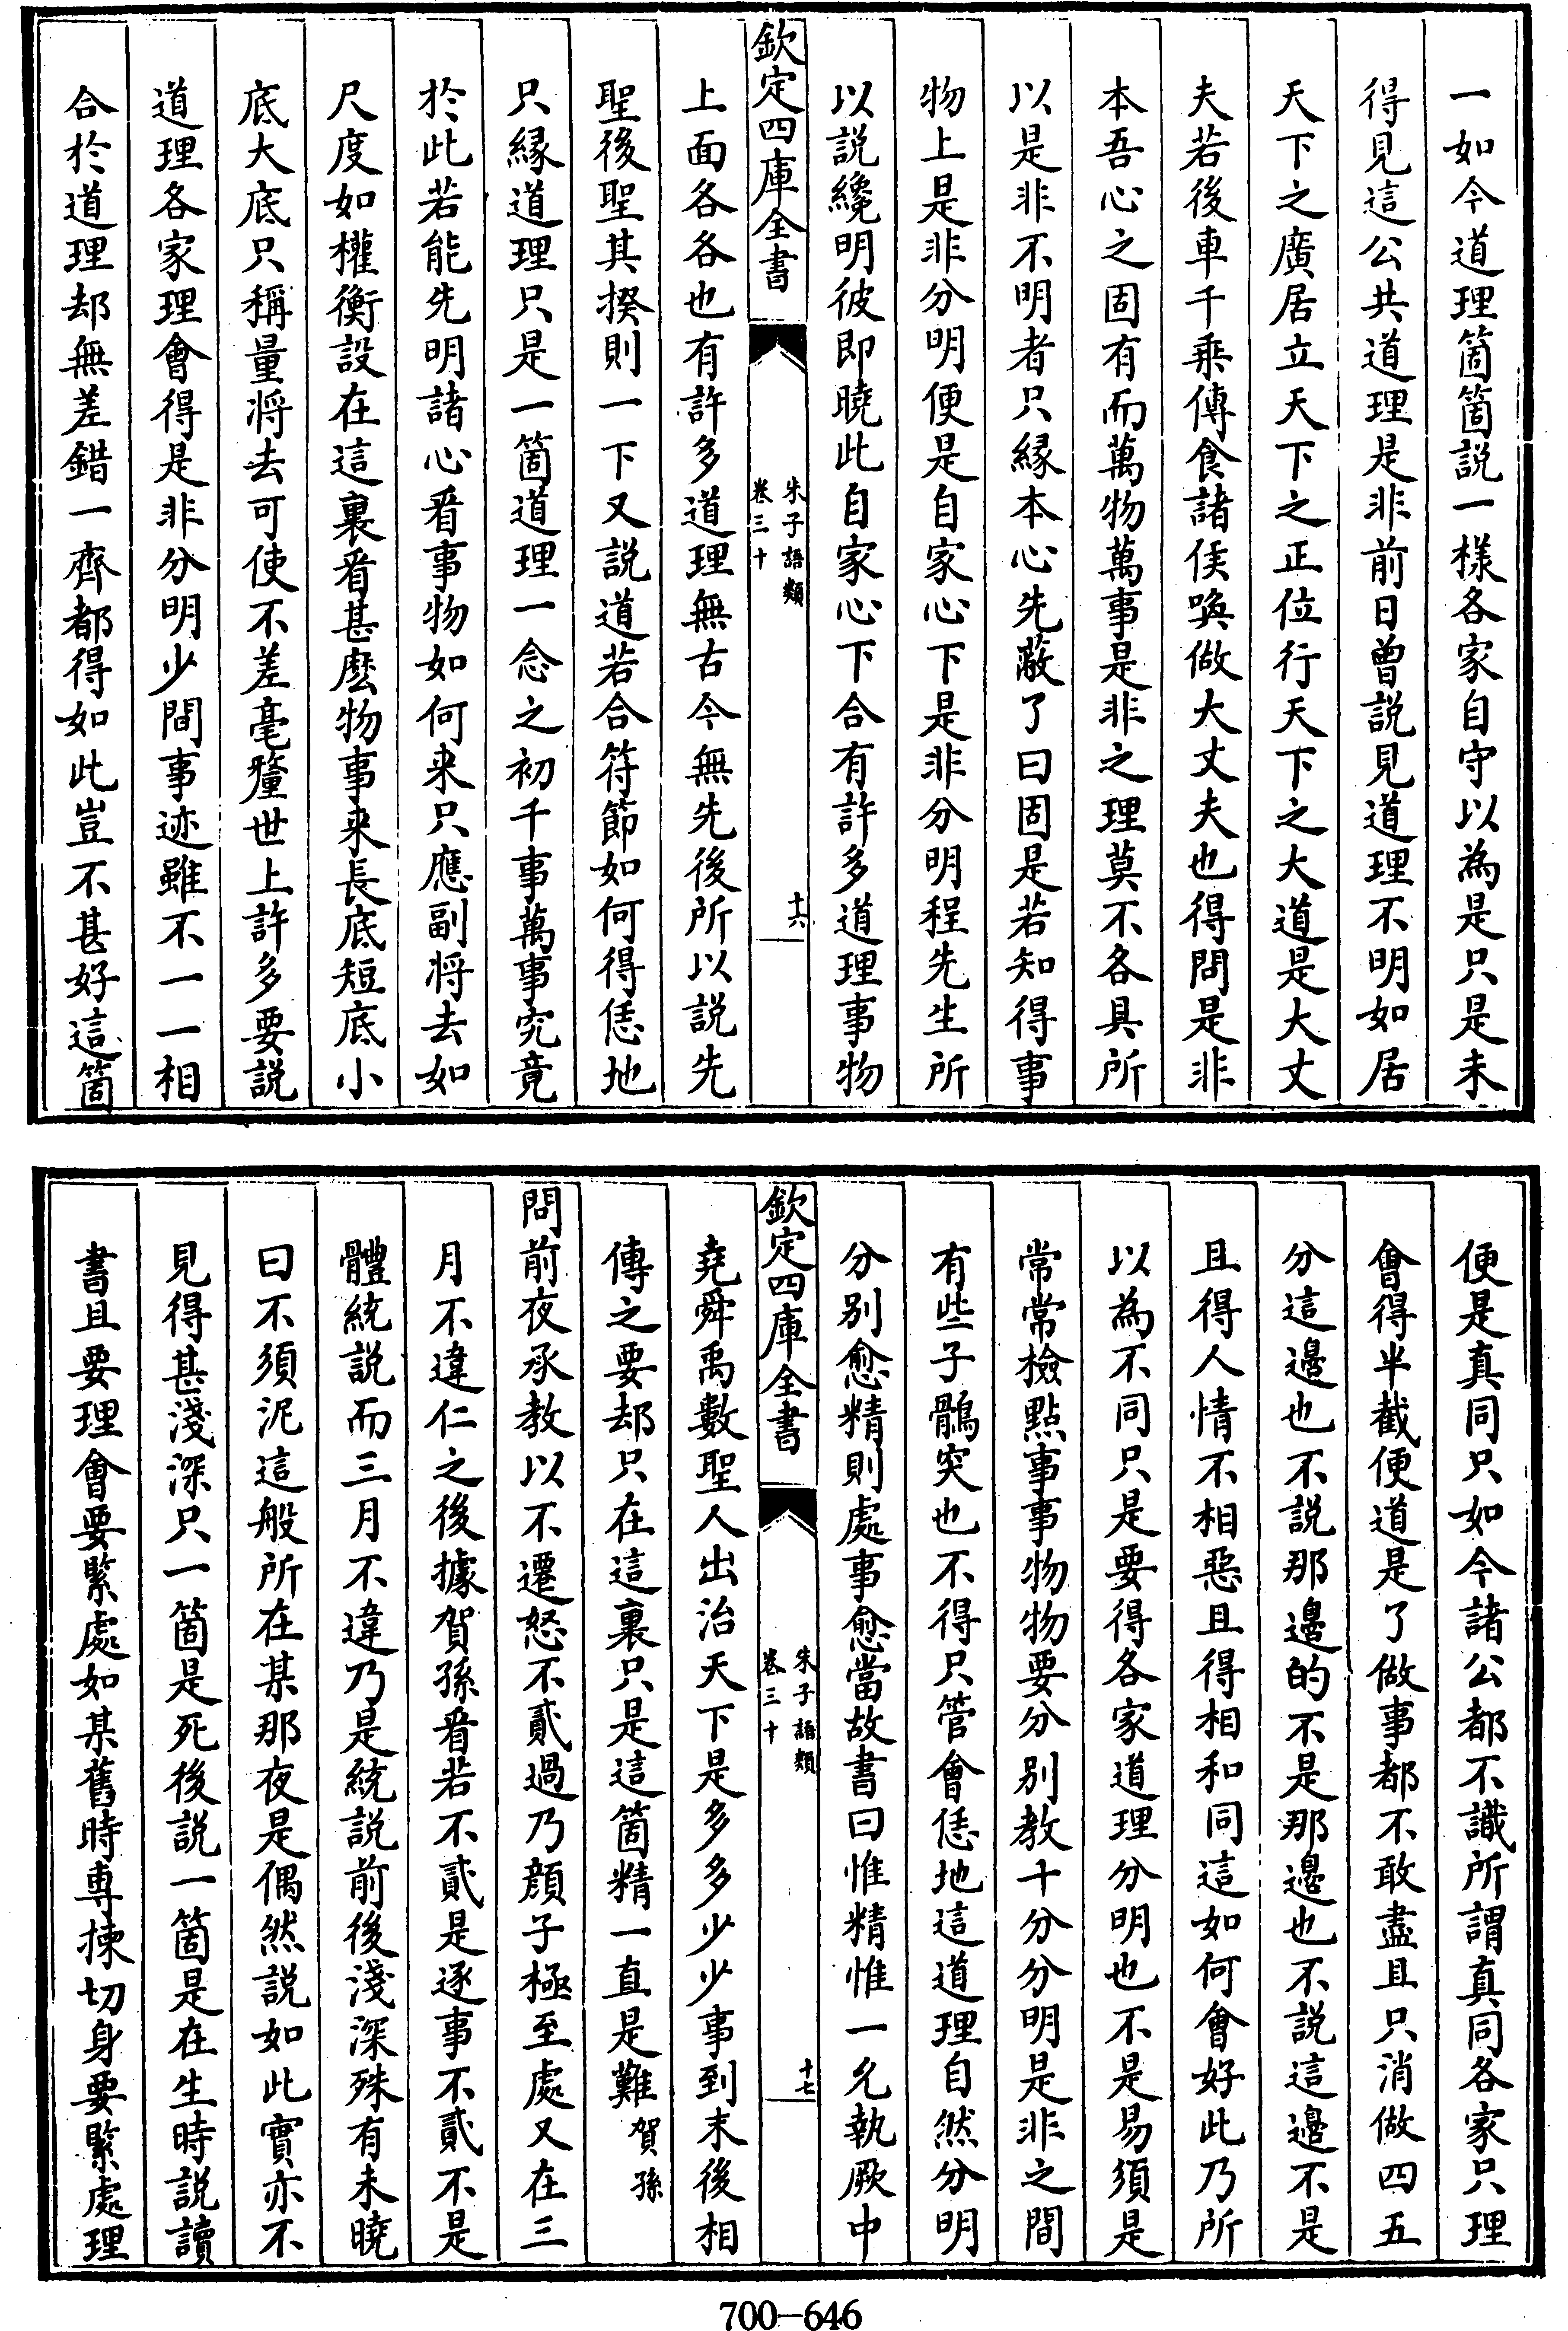 一如今道理箇箇説一樣各家自守以為是只是未
得見這公共道理是非前日曾説見道理不明如居
天下之廣居立天下之正位行天下之大道是大丈
夫若後車千乘傳食諸侯喚做大丈夫也得問是非
本吾心之固有而萬物萬事是非之理莫不各具所
以是非不明者只縁本心先蔽了曰固是若知得事
物上是非分明便是自家心下是非分明程先生所
以説纔明彼即曉此自家心下合有許多道理事物
欽定四庫全書
朱子語類
卷三十
十六
上面各各也有許多道理無古今無先後所以説先
聖後聖其揆則一下又説道若合符節如何得恁地
只縁道理只是一箇道理一念之初千事萬事究竟
於此若能先明諸心看事物如何来只應副將去如
尺度如權衡設在這裏看甚麽物事来長底短底小
底大底只稱量將去可使不差毫釐世上許多要説
道理各家理會得是非分明少間事迹雖不一一相
合於道理却無差錯一齊都得如此豈不甚好這箇
便是真同只如今諸公都不識所謂真同各家只理
會得半截便道是了做事都不敢盡且只消做四五
分這邉也不説那邉的不是那邉也不説這邉不是
且得人情不相惡且得相和同這如何會好此乃所
以為不同只是要得各家道理分明也不是易須是
常常檢點事事物物要分别教十分分明是非之間
有些子鶻突也不得只管會恁地這道理自然分明
分别愈精則處事愈當故書曰惟精惟一允執厥中
欽定四庫全書
朱子語類
卷三十
十七
堯舜禹數聖人出治天下是多多少少事到末後相
傳之要却只在這裏只是這箇精一直是難賀孫
問前夜承教以不遷怒不貳過乃顔子極至處又在三
月不違仁之後據賀孫看若不貳是逐事不貳不是
體統説而三月不違乃是統説前後淺深殊有未曉
曰不須泥這般所在某那夜是偶然説如此實亦不
見得甚淺深只一箇是死後説一箇是在生時説讀
書且要理會要緊處如某舊時專揀切身要緊處理
700-646